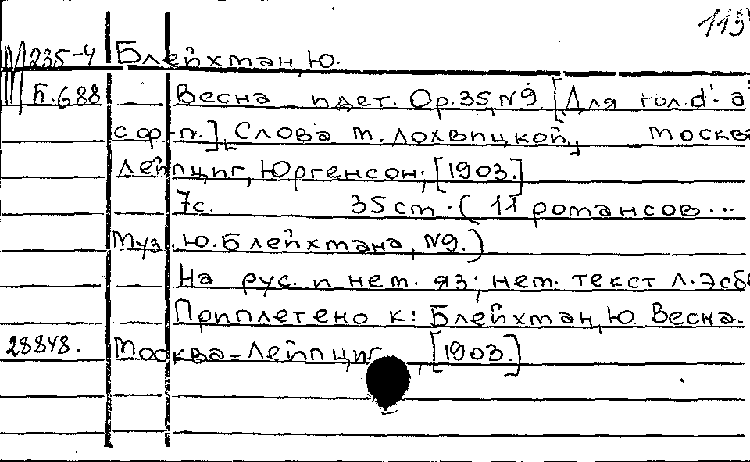 115
235-4 Блейхман, Ю.
Б.688 Весна идет. Ор.35, №9 [Для гол. d'-a
с ф-п.], Слова М. Лохвицкой, Москва
Лейпциг, Юргенсон, [1903.]
7с. 35cm. (11 романсов...
Муз. Ю. Блейхмана, №9.)
На рус. и нем. яз; нем. текст Л. Эсбе
Приплетено к: Блейхман, Ю Весна.
28848. Москва-Лейпциг, [1903.]